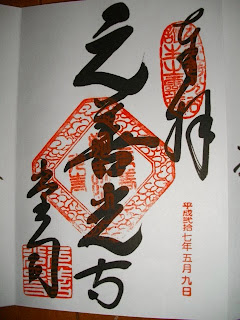 奉拝
平成弐拾七年五月九日
元善光寺
堂司